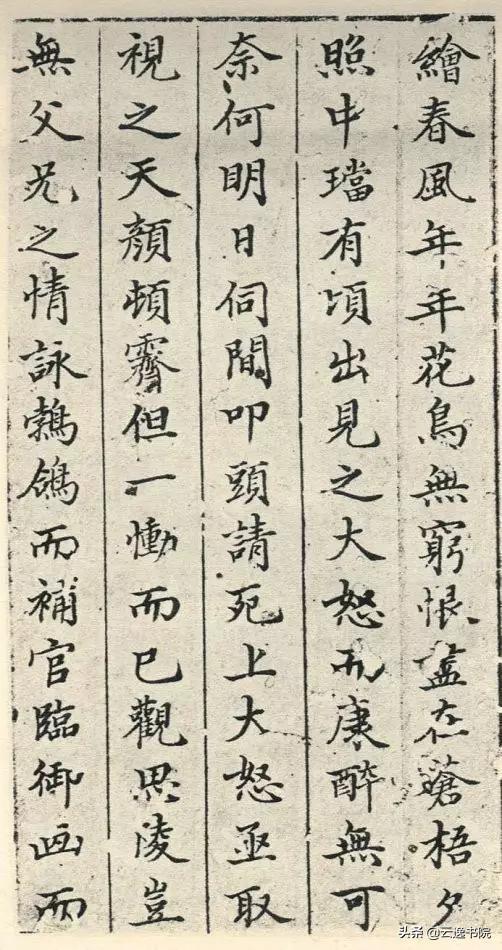 繪春風年年花鳥無窮恨盡在蒼梧夕
照中璫有頃出見之大怒而康醉無可
奈何明日伺間叩頭請死上大怒亟取
視之天顏頓霽但一慟而已觀思陵豈
無父兄之情詠鵓鴿而補官臨御画而
头条@云逸书院